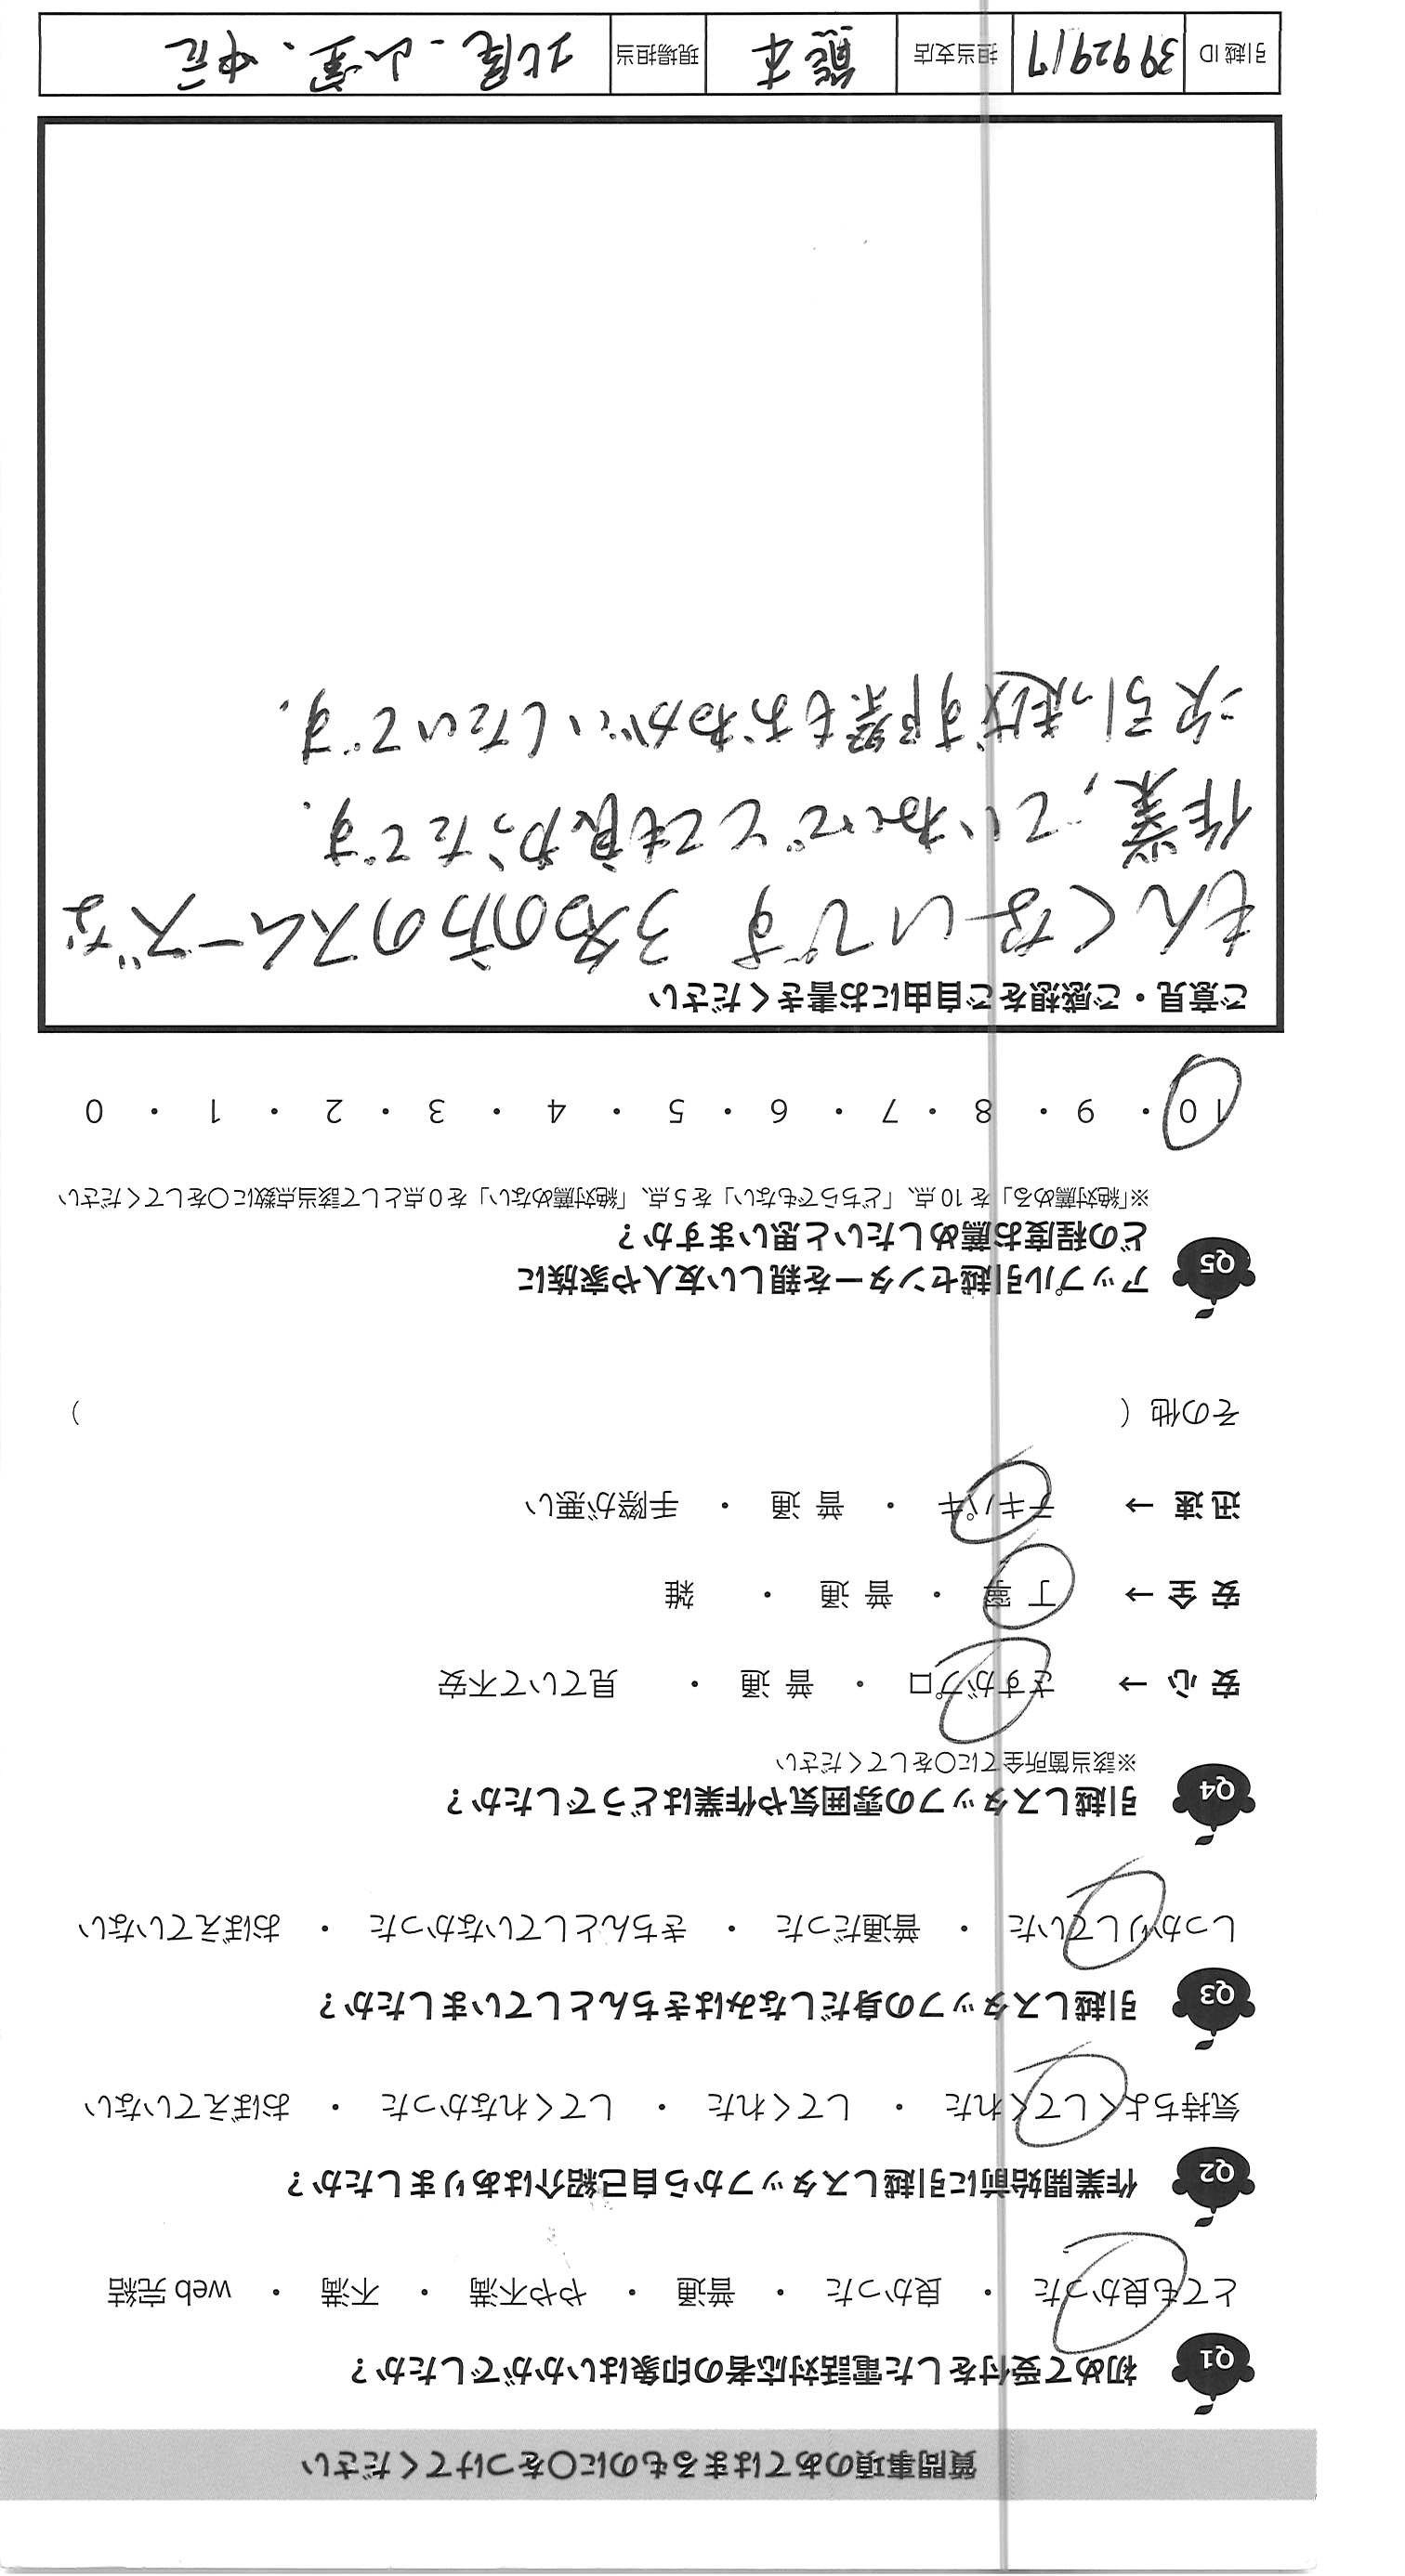 質問事項のあてはまるものに〇をつけてください
Q1 初めて受付をした電話対応者の印象はいかがでしたか?
とても良かった ・ 良かった ・ 普通 ・ やや不満 ・ 不満 ・ web 完結
Q2 作業開始前に引越しスタッフから自己紹介はありましたか?
気持ちよくしてくれた ・ してくれた ・ してくれなかった ・ おぼえていない
Q3 引越しスタッフの身だしなみはきちんとしていましたか?
しっかりしていた ・ 普通だった ・ きちんとしていなかった ・ おぼえていない
Q4 引越しスタッフの雰囲気や作業はどうでしたか?
※該当箇所全てに〇をしてください
安 心 → さすがプロ ・ 普 通 ・ 見ていて不安
安 全 → 丁 寧 ・ 普 通 ・ 雑
迅 速 → テキパキ ・ 普 通 ・ 手際が悪い
その他( )
Q5 アップル引越センターを親しい友人や家族に
どの程度お薦めしたいと思いますか?
※「絶対薦める」を 10 点、「どちらでもない」を 5 点、「絶対薦めない」を 0 点として該当点数に〇をしてください
10 ・ 9 ・ 8 ・ 7 ・ 6 ・ 5 ・ 4 ・ 3 ・ 2 ・ 1 ・ 0
ご意見・ご感想をご自由にお書きください
もんくなーいです 3名の方のスムーズな
作業,ていねいでとても良かったです.
次引っ越す際もおねがいしたいです.
引越 ID 3992917 担当支店 熊本 現場担当 北尾、山室、中元